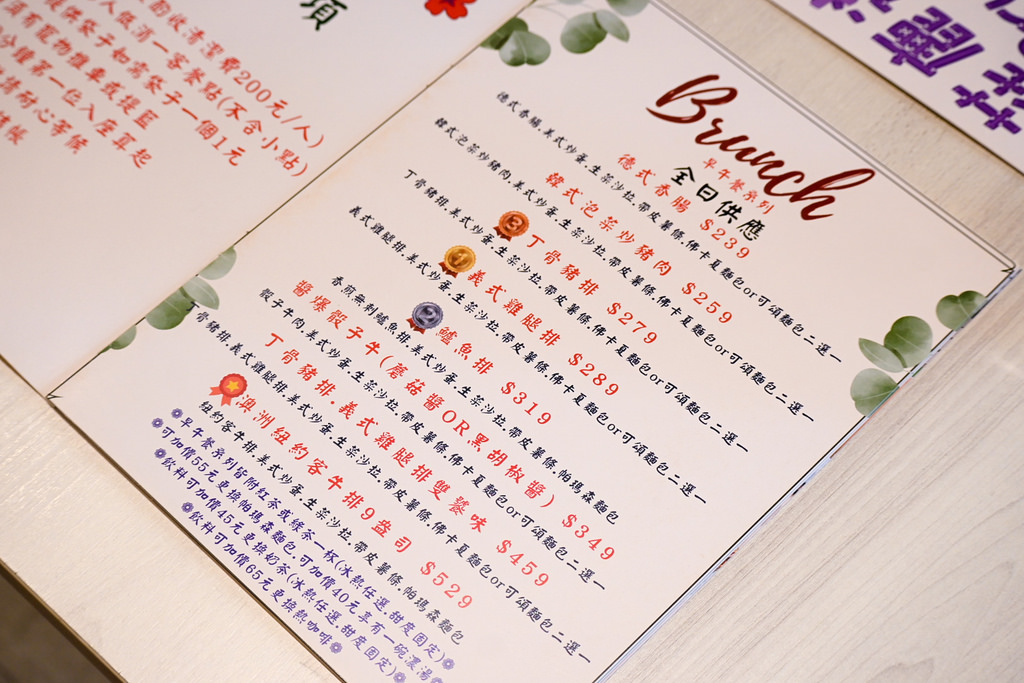 項
回收清潔費200元/人)
人低消一客餐點(不含小點)
提供袋子如需袋子一個1元
有寵物推車或提籃
分鐘第一位入座算起
請耐心等候
Brunch
早午餐系列
全日供應
德式香腸 $239
德式香腸.美式炒蛋.生菜沙拉.帶皮薯條.佛卡夏麵包or可頌麵包二選一
韓式泡菜炒豬肉 $259
韓式泡菜炒豬肉.美式炒蛋.生菜沙拉.帶皮薯條.佛卡夏麵包or可頌麵包二選一
3 丁骨豬排 $279
丁骨豬排.美式炒蛋.生菜沙拉.帶皮薯條.佛卡夏麵包or可頌麵包二選一
1 義式雞腿排 $289
義式雞腿排.美式炒蛋.生菜沙拉.帶皮薯條.佛卡夏麵包or可頌麵包二選一
2 鱸魚排 $319
香煎無刺鱸魚排.美式炒蛋.生菜沙拉.帶皮薯條.帕瑪森麵包
醬爆骰子牛(蘑菇醬OR黑胡椒醬) $349
骰子牛肉.美式炒蛋.生菜沙拉.帶皮薯條.佛卡夏麵包or可頌麵包二選一
丁骨豬排.義式雞腿排雙蛋味 $459
骨豬排.義式雞腿排.美式炒蛋.生菜沙拉.帶皮薯條.佛卡夏麵包or可頌麵包二選一
澳洲紐約客牛排9盎司 $529
紐約客牛排.美式炒蛋.生菜沙拉.帶皮薯條.帕瑪森麵包
早午餐系列皆附紅茶或綠茶一杯(冰熱任選.甜度固定)
可加價55元更換帕瑪森麵包.可加價40元享有一碗濃湯
飲料可加價45元更換奶茶(冰熱任選.甜度固定)
飲料可加價65元更換熱咖啡